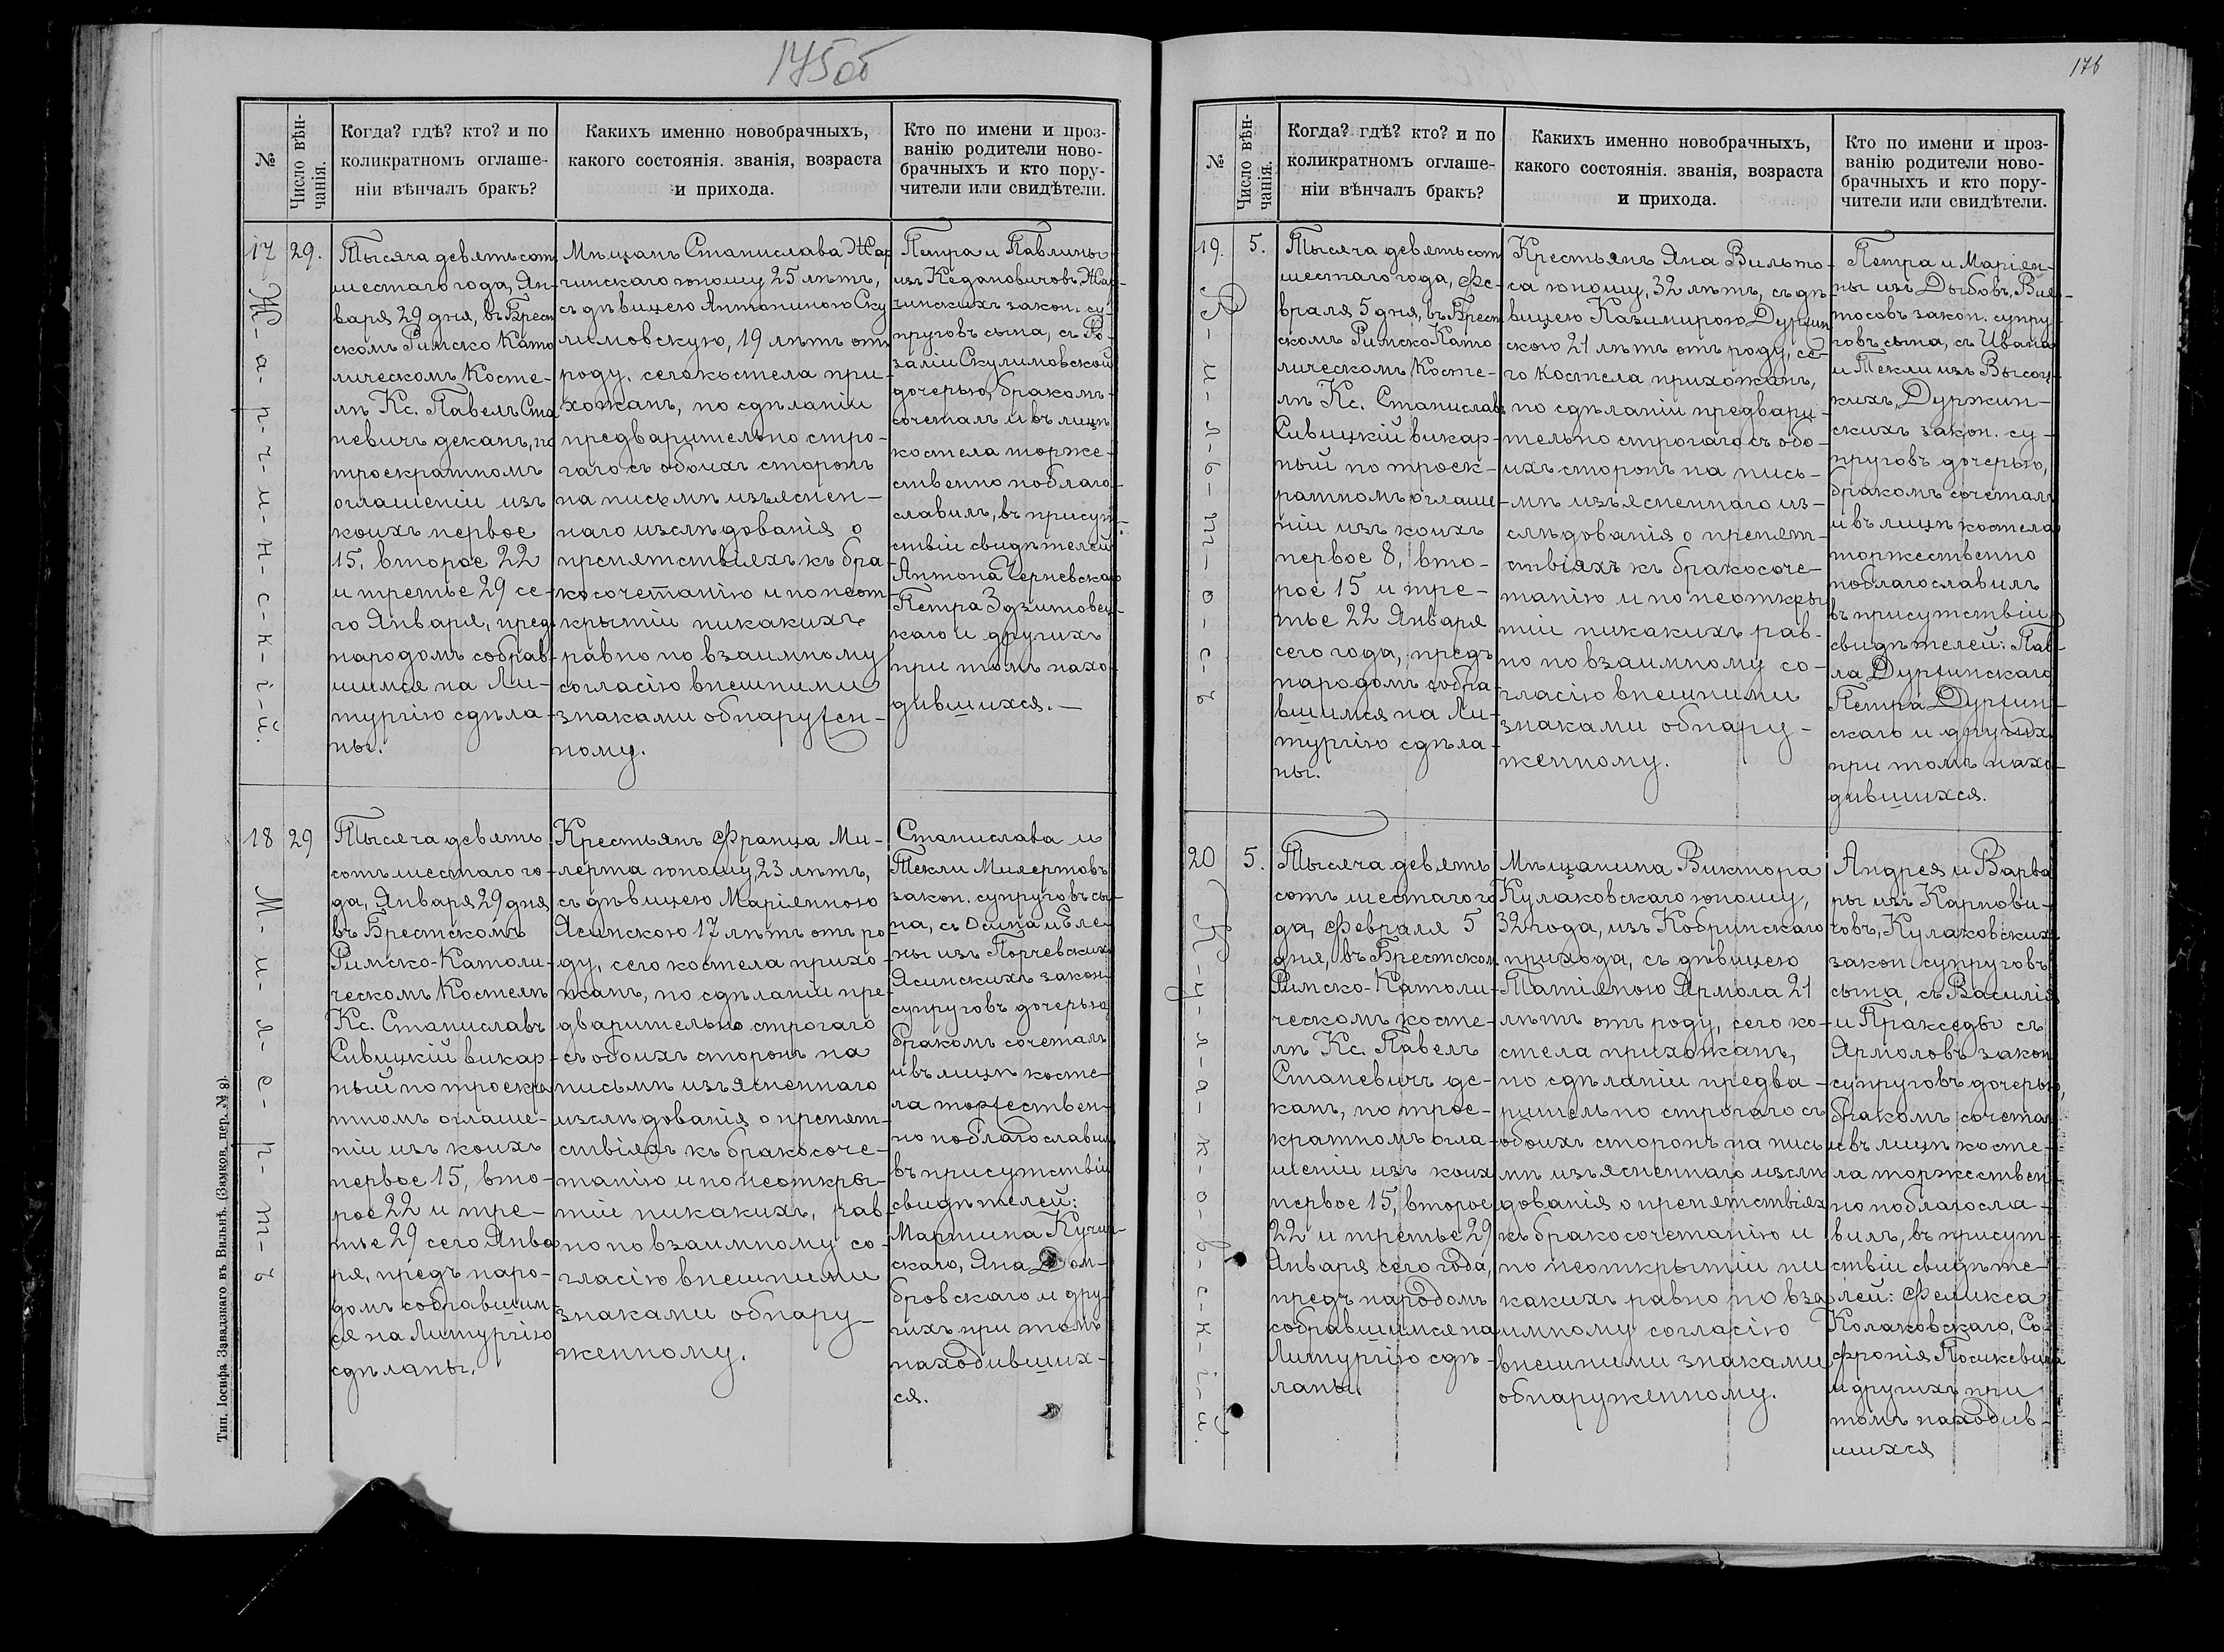 175об
№
Число вѣн-
чанія.
Когда? гдѣ? кто? и по
коликратномъ оглаше-
ніи вѣнчалъ бракъ?
Какихъ именно новобрачныхъ,
какого состоянія. званія, возраста
и прихода.
Кто по имени и проз-
ванію родители ново-
брачныхъ и кто пору-
чители или свидѣтели.
17
Ж-а-р-ч-и-н-с-к-і-й.
29.
Тысяча девятьсотъ
шестаго года, Ян-
варя 29 дня, въ Брест
скомъ Римско Като
лическомъ Косте-
лѣ Кс. Павелъ Ста
невичъ деканъ, по
троекратномъ
оглашеніи изъ
коихъ первое
15, второе 22
и третье 29 се-
го Января, предъ
народомъ собрав-
шимся на Ли-
тургію сдѣла-
ны.
Мѣщанъ Станислава Жар
чинскаго юношу 25 лѣтъ,
съ дѣвицею Антониною Ску
лимовскую, 19 лѣтъ отъ
роду, сего костела при-
хожанъ, по сдѣланіи
предварительно стро-
гаго съ обоихъ сторонъ
на письмѣ изъяснен-
наго изслѣдованія о
препятствіяхъ къ бра-
косочетанію и по неот-
крытіи никакихъ
равно по взаимному
согласію внешними
знаками обнаружен-
ному.
Петра и Павлины
изъ Кедановичовъ Жар-
чинскихъ закон. су-
пруговъ сына, съ Ро-
заліи Скулимовской
дочерью, бракомъ
сочеталъ и въ лицѣ
костела торже-
ственно поблаго-
славилъ, въ присут-
ствіи свидѣтелей:
Антона Черневскаго
Петра Здзитовец-
каго и другихъ
при томъ нахо-
дившихся. —
18
М-и-л-е-р-т-ъ
29
Тысяча девять
сотъ шестаго го-
да, Января 29 дня
въ Брестскомъ
Римско-Католи-
ческомъ Костелѣ
Кс. Станиславъ
Сивицкій викар-
ный по троекра
тномъ оглаше-
ніи изъ коихъ
первое 15, вто-
рое 22 и тре-
тье 29 сего Янва
ря, предъ наро-
домъ собравшим
ся на Литургію
сдѣланы.
Крестьянъ Франца Ми-
лерта юношу, 23 лѣтъ,
съ дѣвицею Маріянною
Ясинскою 17 лѣтъ отъ ро
ду, сего костела прихо-
жанъ, по сдѣланіи пре-
дварительно строгаго
съ обоихъ сторонъ на
письмѣ изъясненнаго
изслѣдованія о препят-
ствіяхъ къ бракосоче-
танію и по неоткры-
тіи никакихъ, рав-
но по взаимному со-
гласію внешними
знаками обнару-
женному.
Станислава и
Текли Милертовъ
закон. супруговъ сы-
на, съ Осипа и Еле-
ны изъ Порчевскихъ
Ясинскихъ закон.
супруговъ дочерью,
бракомъ сочеталъ
и въ лицѣ косте-
ла торжествен-
но поблагославилъ
въ присутствіи
свидѣтелей:
Мартина Кучин-
скаго, Яна Дом-
бровскаго и дру-
гихъ при томъ
находивших-
ся.
Тип. Іосифа Завадзкаго въ Вильнѣ. (Замков. пер. № 8).
176
№
Число вѣн-
чанія.
Когда? гдѣ? кто? и по
коликратномъ оглаше-
ніи вѣнчалъ бракъ?
Какихъ именно новобрачныхъ,
какого состоянія. званія, возраста
и прихода.
Кто по имени и проз-
ванію родители ново-
брачныхъ и кто пору-
чители или свидѣтели.
19.
В-и-л-ь-т-о-с-ъ
5.
Тысяча девятьсот
шестаго года, Фе-
враля 5 дня, въ Брест
скомъ Римско Като
лическомъ Косте-
лѣ Кс. Станиславъ
Сивицкій викар-
ный по троек-
ратномъ оглаше
ніи изъ коихъ
первое 8, вто-
рое 15 и тре-
тье 22 Января
сего года, предъ
народомъ собра-
вшимся на Ли-
тургію сдѣла-
ны.
Крестьянъ Яна Вильто-
са юношу, 32 лѣтъ, съ дѣ-
вицею Казимирою Дуржин
скою 21 лѣтъ отъ роду, се-
го костела прихожанъ,
по сдѣланіи предвари-
тельно строгаго съ обо-
ихъ сторонъ на пись-
мѣ изъясненнаго из-
слѣдованія о препят-
ствіяхъ къ бракосоче-
танію и по неоткры
тіи никакихъ рав-
но по взаимному со-
гласію внешними
знаками обнару-
женному.
Петра и Маріен-
ны изъ Дыбовъ, Виль-
тосовъ закон. супру-
говъ сына, съ Ивана
и Текли изъ Высоц-
кихъ, Дуржин-
скихъ закон. су-
пруговъ дочерью,
бракомъ сочеталъ
и въ лицѣ костела
торжественно
поблагославилъ
въ присутствіи
свидѣтелей: Пав-
ла Дуржинскаго
Петра Дуржин-
скаго и другихъ
при томъ нахо-
дившихся.
20
К-у-л-а-к-о-в-с-к-і-й.
5.
Тысяча девять
сотъ шестаго го
да, Февраля 5
дня, въ Брестском
Римско-Католи-
ческомъ косте-
лѣ Кс. Павелъ
Станевичъ де-
канъ, по трое-
кратномъ огла-
шеніи изъ коих
первое 15, второе
22 и третье 29
Января сего года,
предъ народомъ
собравшимся на
Литургію сдѣ-
ланы.
Мѣщанина Виктора
Кулаковскаго юношу,
32 года, изъ Кобринскаго
прихода, съ дѣвицею
Татіяною Ярмола 21
лѣтъ отъ роду, сего ко-
стела прихожанъ,
по сдѣланіи предва-
рительно строгаго съ
обоихъ сторонъ на пись
мѣ изъясненнаго изслѣ
дованія о препятствіях
къ бракосочетанію и
по неоткрытіи ни
какихъ равно по вза
имному согласію
внешними знаками
обнаруженному.
Андрея и Варва
ры изъ Карпови-
човъ, Кулаковских
закон. супруговъ
сына, съ Василія
и Пракседы съ
Ярмоловъ закон
супруговъ дочерью,
бракомъ сочетал
и въ лицѣ косте-
ла торжествен
но поблагосла-
вилъ, въ присут-
ствіи свидѣте-
лей: Феликса
Колаковскаго, Со-
фронія
и другихъ при
томъ находив-
шихся